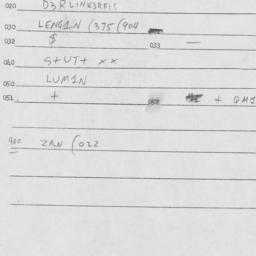 020 D3RLINK3RFIS
030 LENG1N (375(904
032 $ 033 —
040 S+UT+ xx
050 LUM1N
051 + + QM1
900 ZAN (022